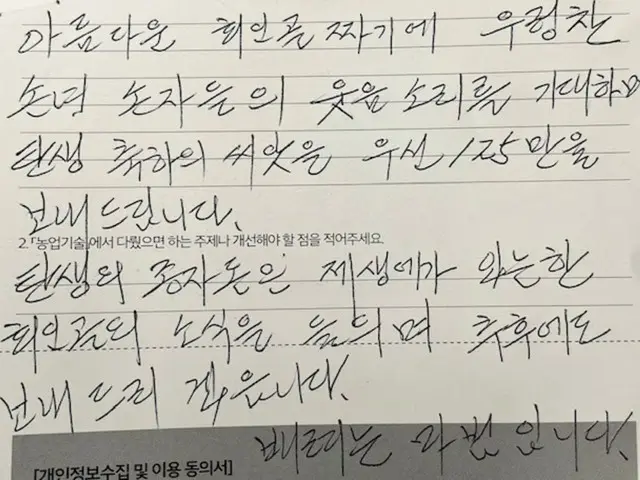 아름다운 회인골짜기에 우렁찬
손녀 손자들의 웃음소리를 기대하며
탄생 축하의 씨앗을 우선 125만을
보내드립니다.
2. 「농업기술」에서 다뤘으면 하는 주제나 개선해야 할 점을 적어주세요.
탄생의 종자돈은 제생애가 완능한
회인골의 소식을 들으며 추후에도
보내 드리 겠읍니다.
배려는 마법입니다.
[개인정보수집 및 이용 동의서]